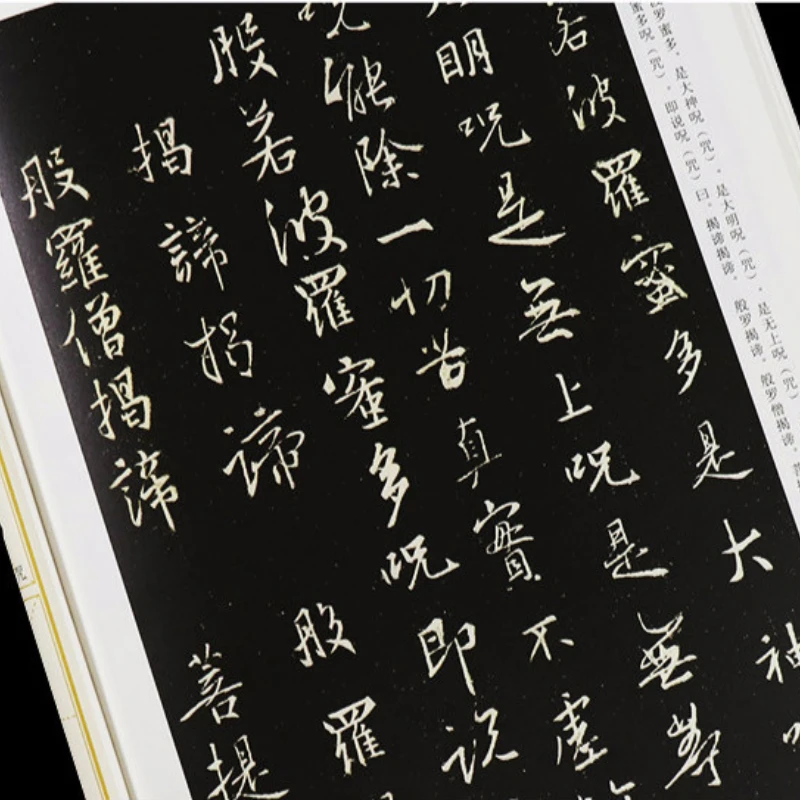 波罗蜜多，是大神呪（咒），是大明呪（咒），是无上呪（咒）
蜜多呪（咒），即说呪（咒）曰，揭谛揭谛，般罗揭谛，般罗僧揭谛，菩
若波羅蜜多是大神
明呪是無上呪是無等
呪能除一切苦真實不虛
般若波羅蜜多呪即説
揭諦揭諦般羅
般羅僧揭諦菩提